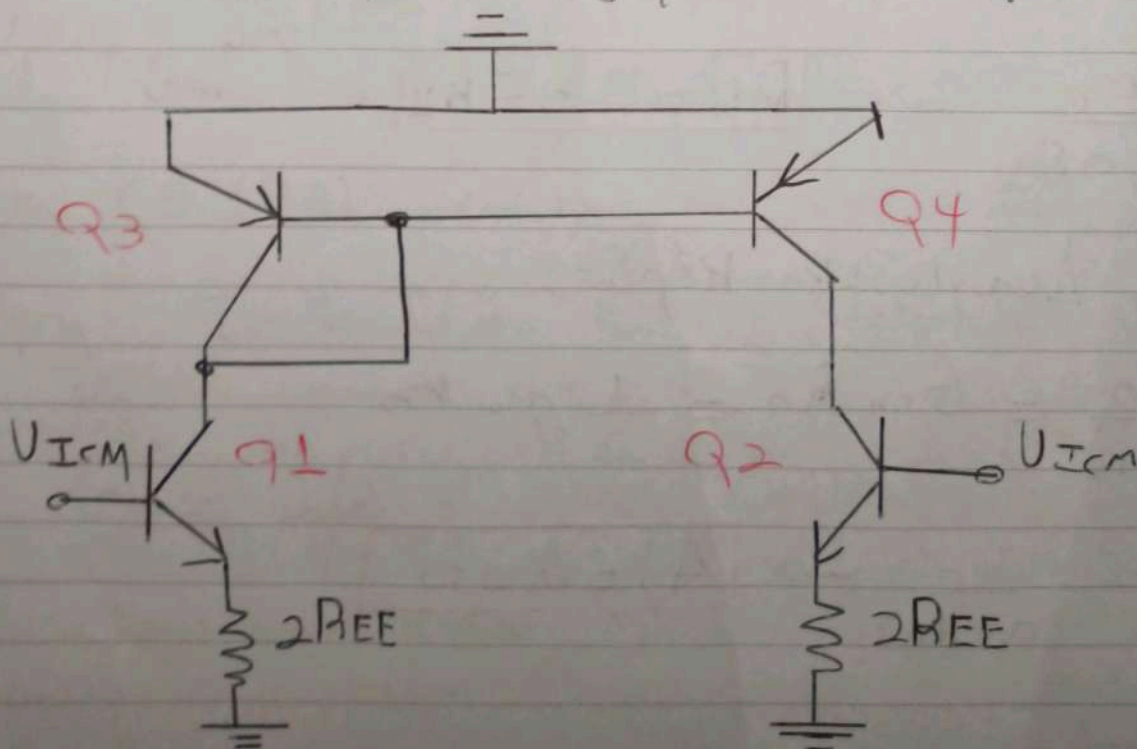 Q3
Q4
UIcM
Q1
Q2
UIcM
2REE
2REE